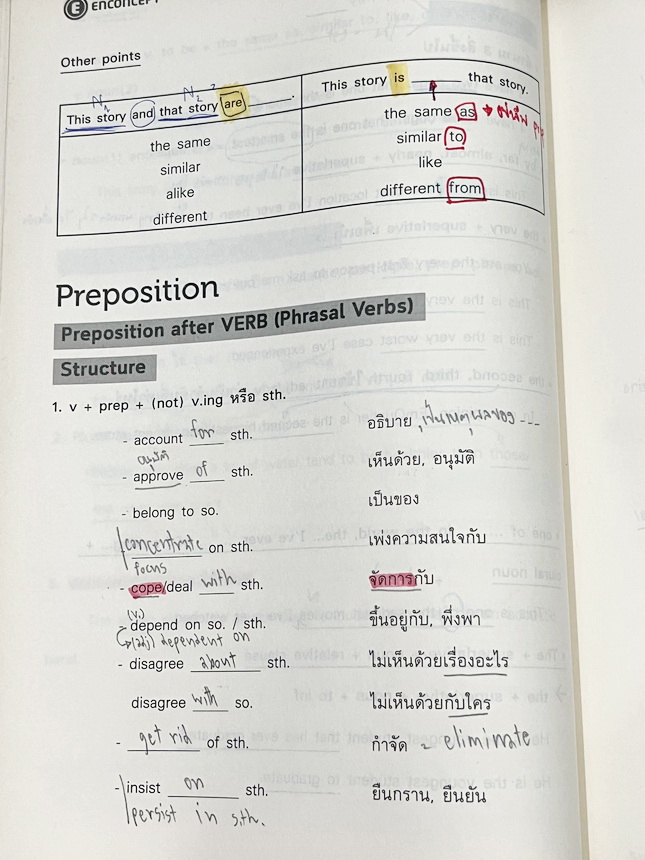 E ENCONCEPT
Other points
N₁ N₂
This story and that story are ________.
the same
similar
alike
different
This story is ______ that story.
the same as →
similar to
like
different from
Preposition
Preposition after VERB (Phrasal Verbs)
Structure
1. v + prep + (not) v.ing หรือ sth.
- account for sth. อธิบาย, เป็นเหตุผลของ ---
อนุมัติ
- approve of sth. เห็นด้วย, อนุมัติ
- belong to so. เป็นของ
- concentrate on sth. เพ่งความสนใจกับ
focus
- cope/deal with sth. จัดการกับ
(v.)
- depend on so. / sth. ขึ้นอยู่กับ, พึ่งพา
(adj) dependent on
- disagree about sth. ไม่เห็นด้วยเรื่องอะไร
disagree with so. ไม่เห็นด้วยกับใคร
- get rid of sth. กำจัด ~ eliminate
- insist on sth. ยืนกราน, ยืนยัน
persist in sth.